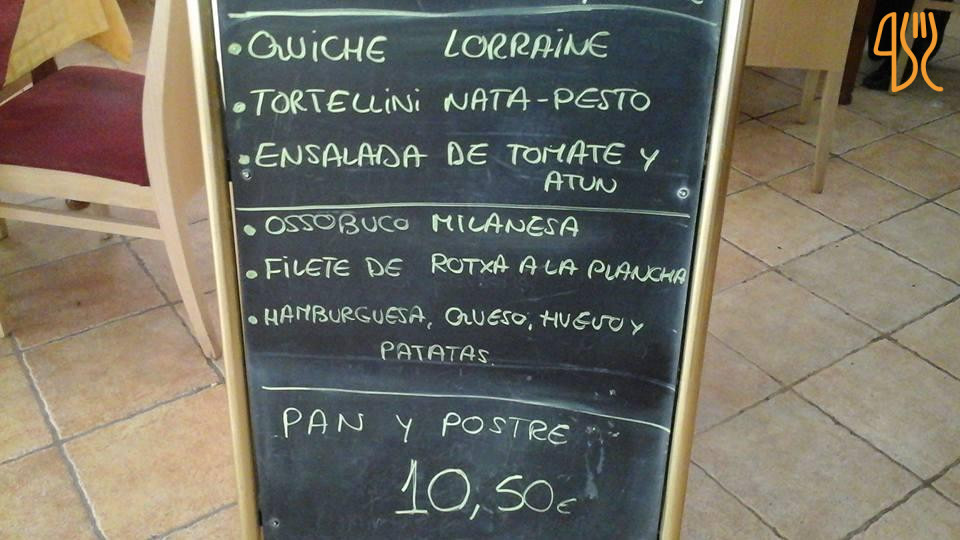 • QUICHE LORRAINE
• TORTELLINI NATA-PESTO
• ENSALADA DE TOMATE Y
ATUN
• OSSOBUCO MILANESA
• FILETE DE ROTXA A LA PLANCHA
• HAMBURGUESA, QUESO, HUEVO Y
PATATAS.
PAN Y POSTRE
10,50€